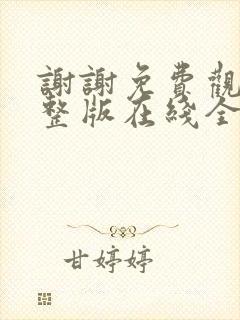 謝謝免費觀
整版在线全
甘婷婷